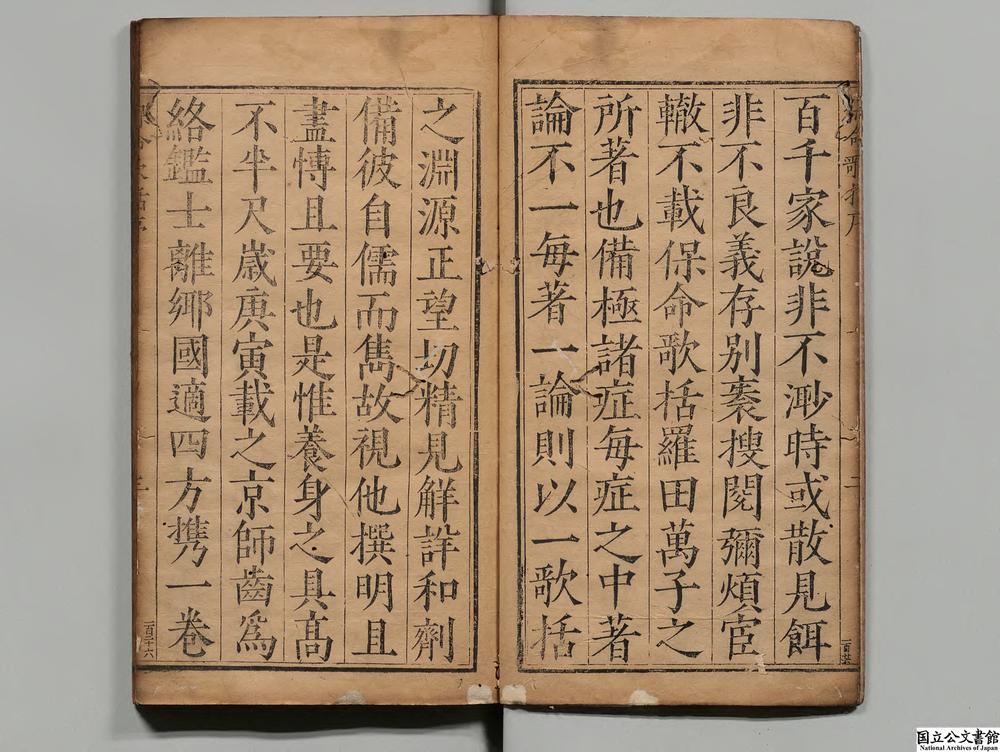 百千家說非不渺時或散見餌
非不良義存別袠搜閱彌煩宦
轍不載保命歌括羅田萬子之
所著也備極諸症每症之中著
論不一每著一論則以一歌括
之淵源正望切精見解詳和劑
備彼自儒而雋故視他撰明且
盡愽且要也是惟養身之具高
不半尺歲庚寅載之京師齒為
絡鑑士離鄉國適四方携一卷
國立公文書館
National Archives of Japan